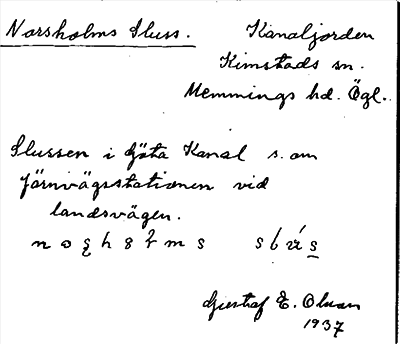 Norsholms Sluss. Kanaljorden
Kimstads sn.
Memmings hd. Ögl.
Slussen i Göta Kanal s. om
järnvägsstationen vid
landsvägen.
Gustaf E. Olsson
1937